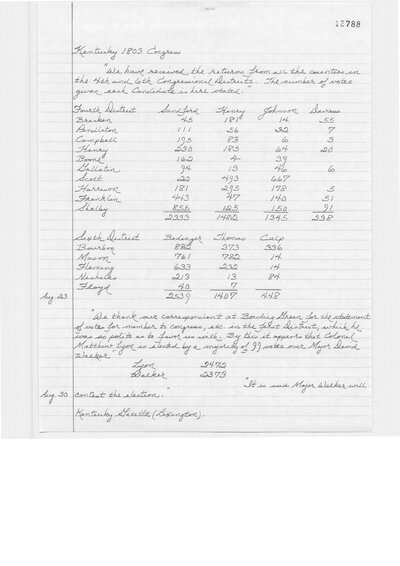 12788
Kentucky 1803 Congress
"We have received the returns from all the counties in
the 4th and 6th Congressional Districts. The number of votes
given each Candidate is here stated."
Fourth District Sandford Henry Johnson Daviess
Bracken 45 181 14 55
Pendleton 111 56 32 7
Campbell 195 83 6 3
Henry 230 185 64 20
Boone 162 4 39
Gallatin 94 13 46 6
Scott 22 493 667
Harrison 181 295 178 5
Franklin 443 47 140 51
Shelby 855 125 150 91
2333 1482 1345 238
Sixth District Bedinger Thomas Culp
Bourbon 882 373 336
Mason 761 782 14
Fleming 633 232 14
Nicholas 213 13 84
Floyd 40 7
Aug 23 2539 1407 448
"We thank our correspondent at Bowling Green for the statement
of votes for member to congress, etc. in the first District, which he
was so polite as to favor us with. By this it appears that Colonel
Matthew Lyon is elected by a majority of 99 votes over Major David
Walker"
Lyon 2472
Walker 2373
"It is said Major Walker will
Aug 30 contest the election."
Kentucky Gazette (Lexington).